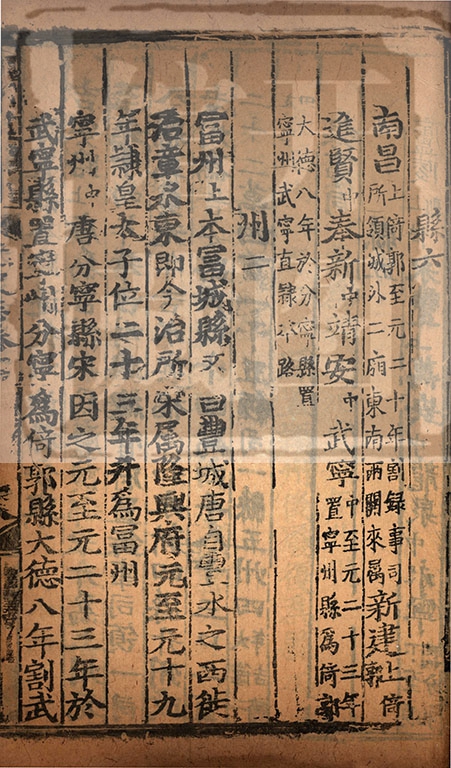 縣六
南昌上倚郭至元二十年割録事司所領城外二廂東南兩關來屬新建上倚郭
進賢中奉新中靖安中武寧中至元二十三年置寧州縣爲倚郭
大德八年於分寧縣置寧州武寧直隸本路
州二
富州上本富城縣又曰豐城唐自豐水之西徙
治章水東即今治所宋屬隆興府元至元十九
年隷皇太子位二十三年升爲冨州
寧州中唐分寧縣宋因之元至元二十三年於
武寧縣置寧州分寧爲倚郭縣大德八年割武